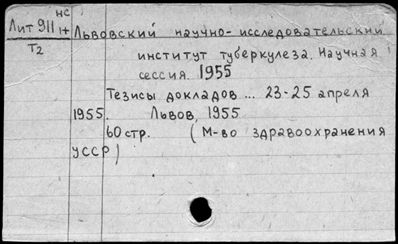 НС
Лит 911 1+ Львовский научно-исследовательский
Т2 институт туберкулеза. Научная
сессия. 1955
Тезисы докладов ... 23-25 апреля
1955. Львов, 1955
60 стр. (М-во здравоохранения
УССР)